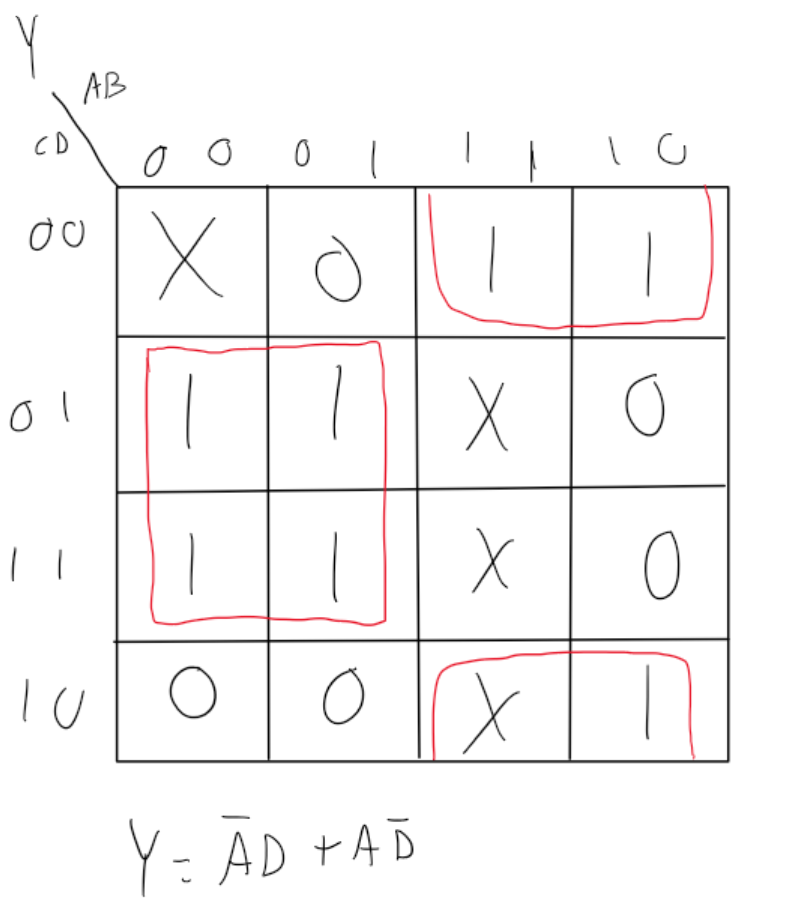 Y
AB
CD
0 0 0 1 1 1 1 0
00 X 0 1 1
01 1 1 X 0
11 1 1 X 0
10 0 0 X 1
Y = A̅D + AD̅